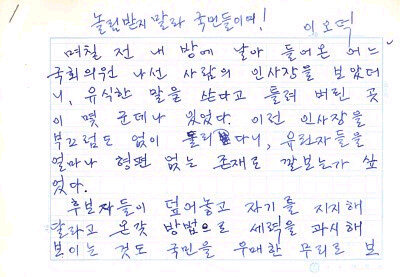 놀림받지 말라 국민들이여!
이오덕
며칠 전 내 방에 날아 들어온 어느
국회의원 나선 사람의 인사장을 보았더
니, 유식한 말을 쓴다고 틀려 버린 곳
이 몇 군데나 있었다. 이런 인사장을
부끄럼도 없이 돌리다니, 유권자들을
얼마나 형편 없는 존재로 깔보는가 싶
었다.
후보자들이 덮어놓고 자기를 지지해
달라고 온갖 방법으로 세력을 과시해
보이는 것도 국민을 우매한 무리로 보